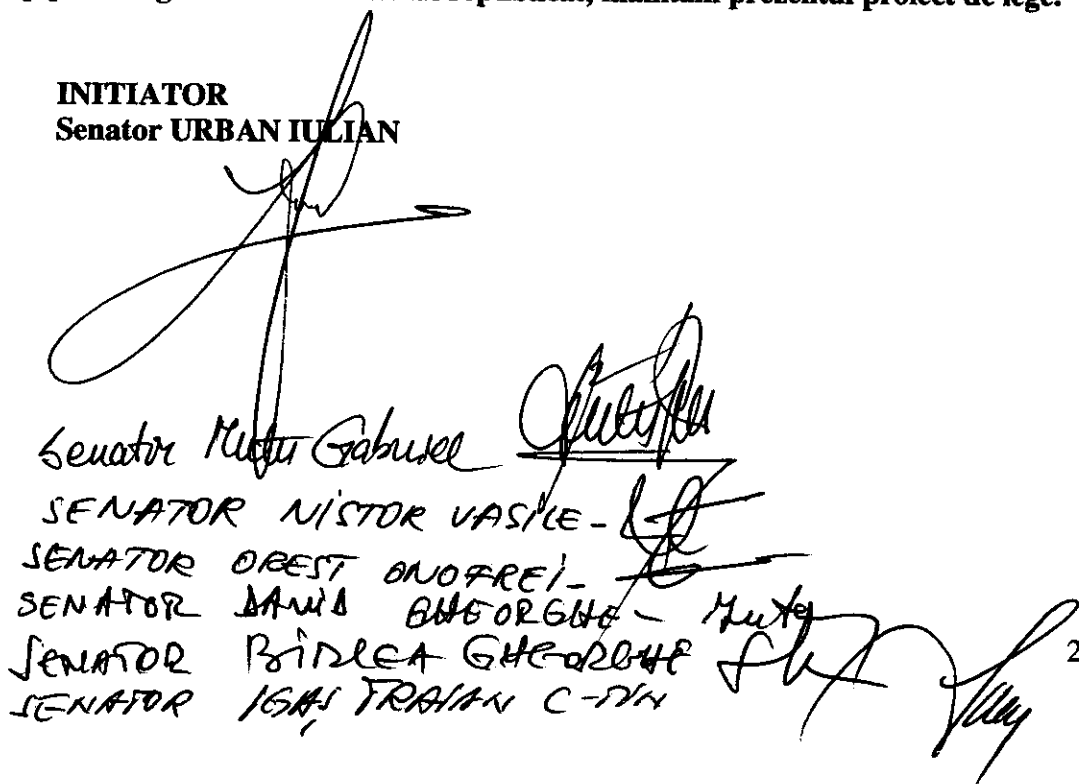 prezentul proiect de lege.
INITIATOR
Senator URBAN IULIAN
Senator Mutu Gabriel
SENATOR NISTOR VASILE -
SENATOR OREST ONOFREI -
SENATOR DAVID GHEORGHE -
SENATOR BÎRLEA GHEORGHE
SENATOR IGAȘ TRAIAN C-TIN
2